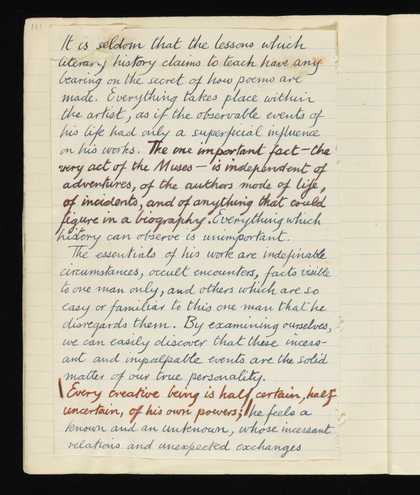 It is seldom that the lessons which
literary history claims to teach have any
bearing on the secret of how poems are
made. Everything takes place within
the artist, as if the observable events of
his life had only a superficial influence
on his works. The one important fact — the
very act of the Muses — is independent of
adventures, of the authors mode of life,
of incidents, and of anything that could
figure in a biography. Everything which
history can observe is unimportant.
The essentials of his work are indefinable
circumstances, occult encounters, facts visible
to one man only, and others which are so
easy or familiar to this one man that he
disregards them. By examining ourselves,
we can easily discover that these incess-
ant and impalpable events are the solid
matter of our true personality.
Every creative being is half certain, half
uncertain, of his own powers; he feels a
known and an unknown, whose incessant
relations and unexpected exchanges